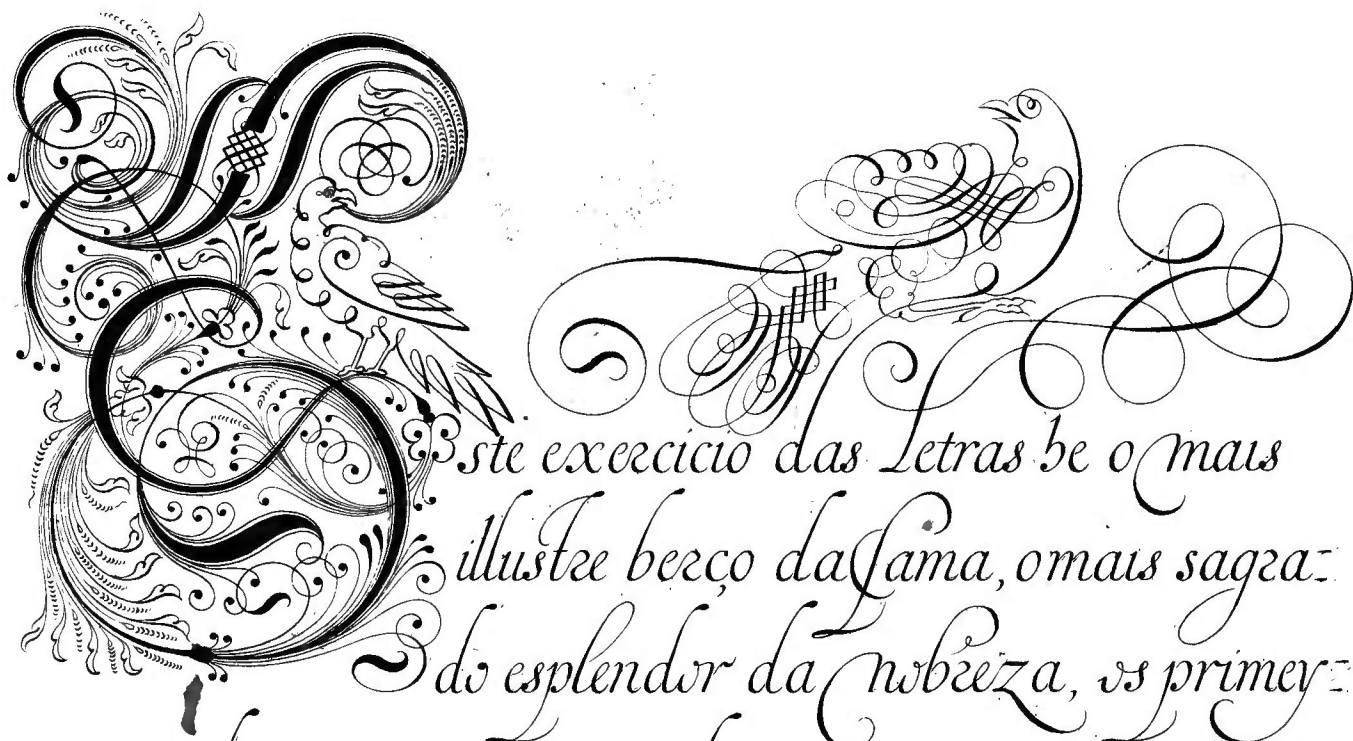 Este exercicio das Letras he o mais
illustre berço da fama, o mais sagra=
do esplendor da nobreza, os primey=